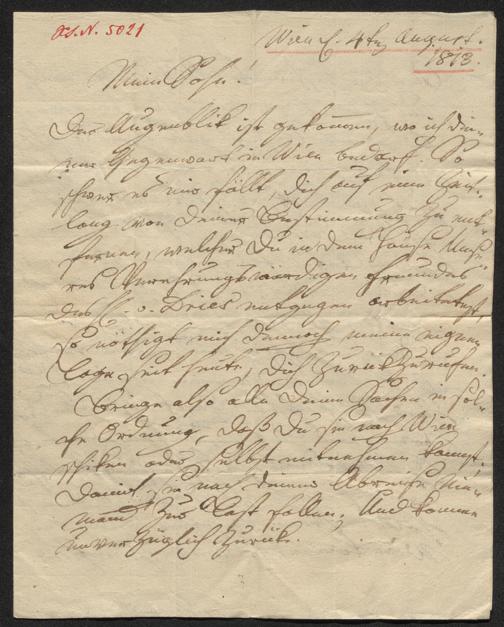 H.I.N. 5021
Wien d. 4ten August.
1813.
Mein Sohn!
Der Augenblik ist gekom̅en, wo ich dei-
ne Gegenwart in Wien bedarf. So
schwer es mir fällt, dich auf eine Zeit-
lang von deiner Bestimmung zu ent-
fernen, welcher Du in dem Hause Unse-
res Verehrungswürdigen Freundes
des H. v. Dries entgegen arbeitetest
so nöthiget mich dennoch meine eigene
Lage seit heute, dich zurückzurufen.
Bringe also alle deine Sachen in sol-
che Ordnung, daß Du sie nach Wien
schiken oder selbst mitnehmen kannst.
Damit sie nach deiner Abreise Nie-
mand zur Last fallen. Und komme
unverzüglich zurück.